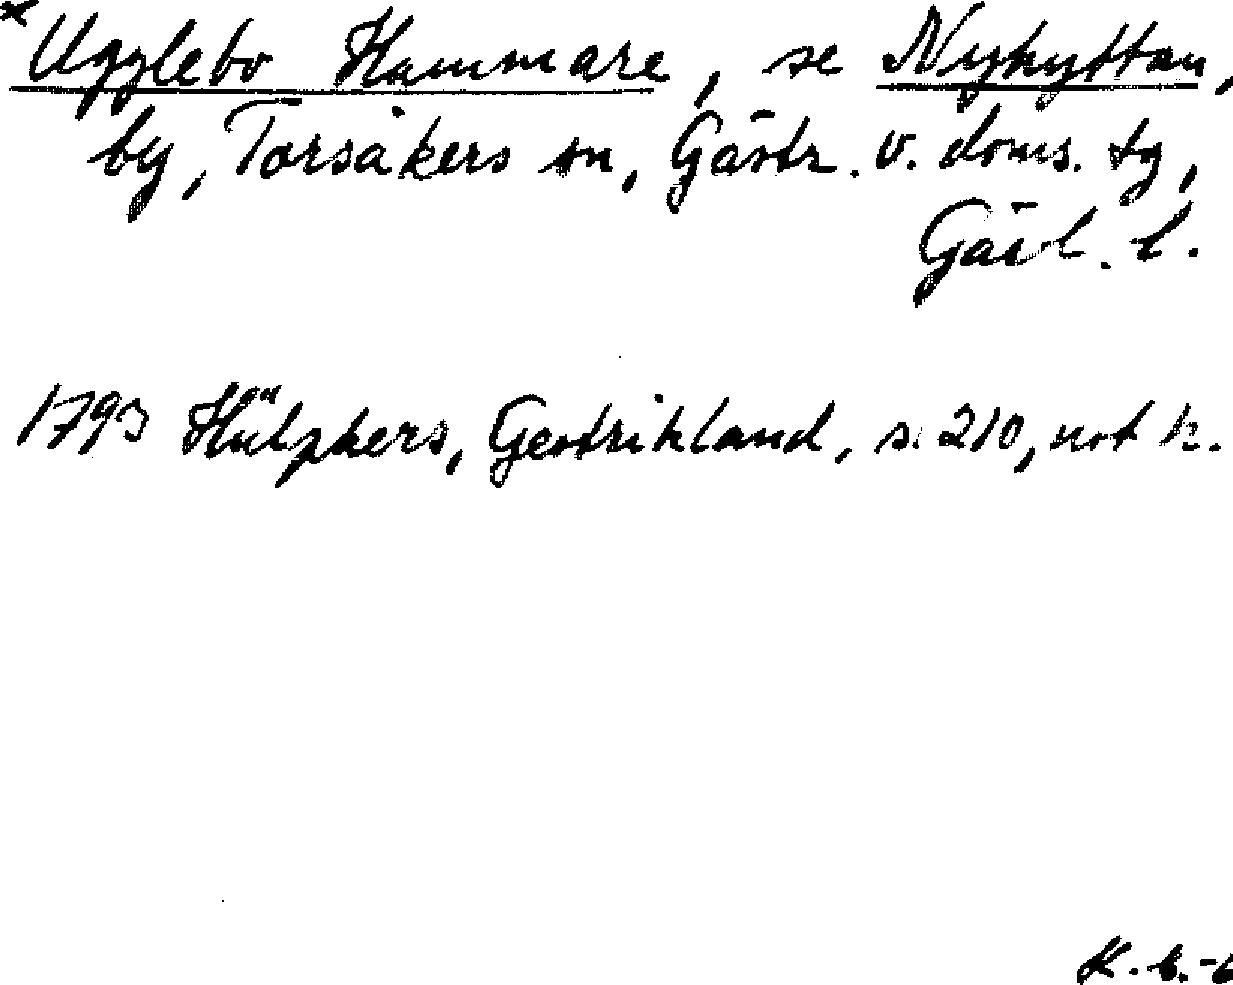 *Ugglebo Hammare, se Nyhyttan,
by, Torsåkers sn, Gästr. v. doms. tg,
Gävl. l.
1793 Hülphers, Gestrikland, s. 210, not k.